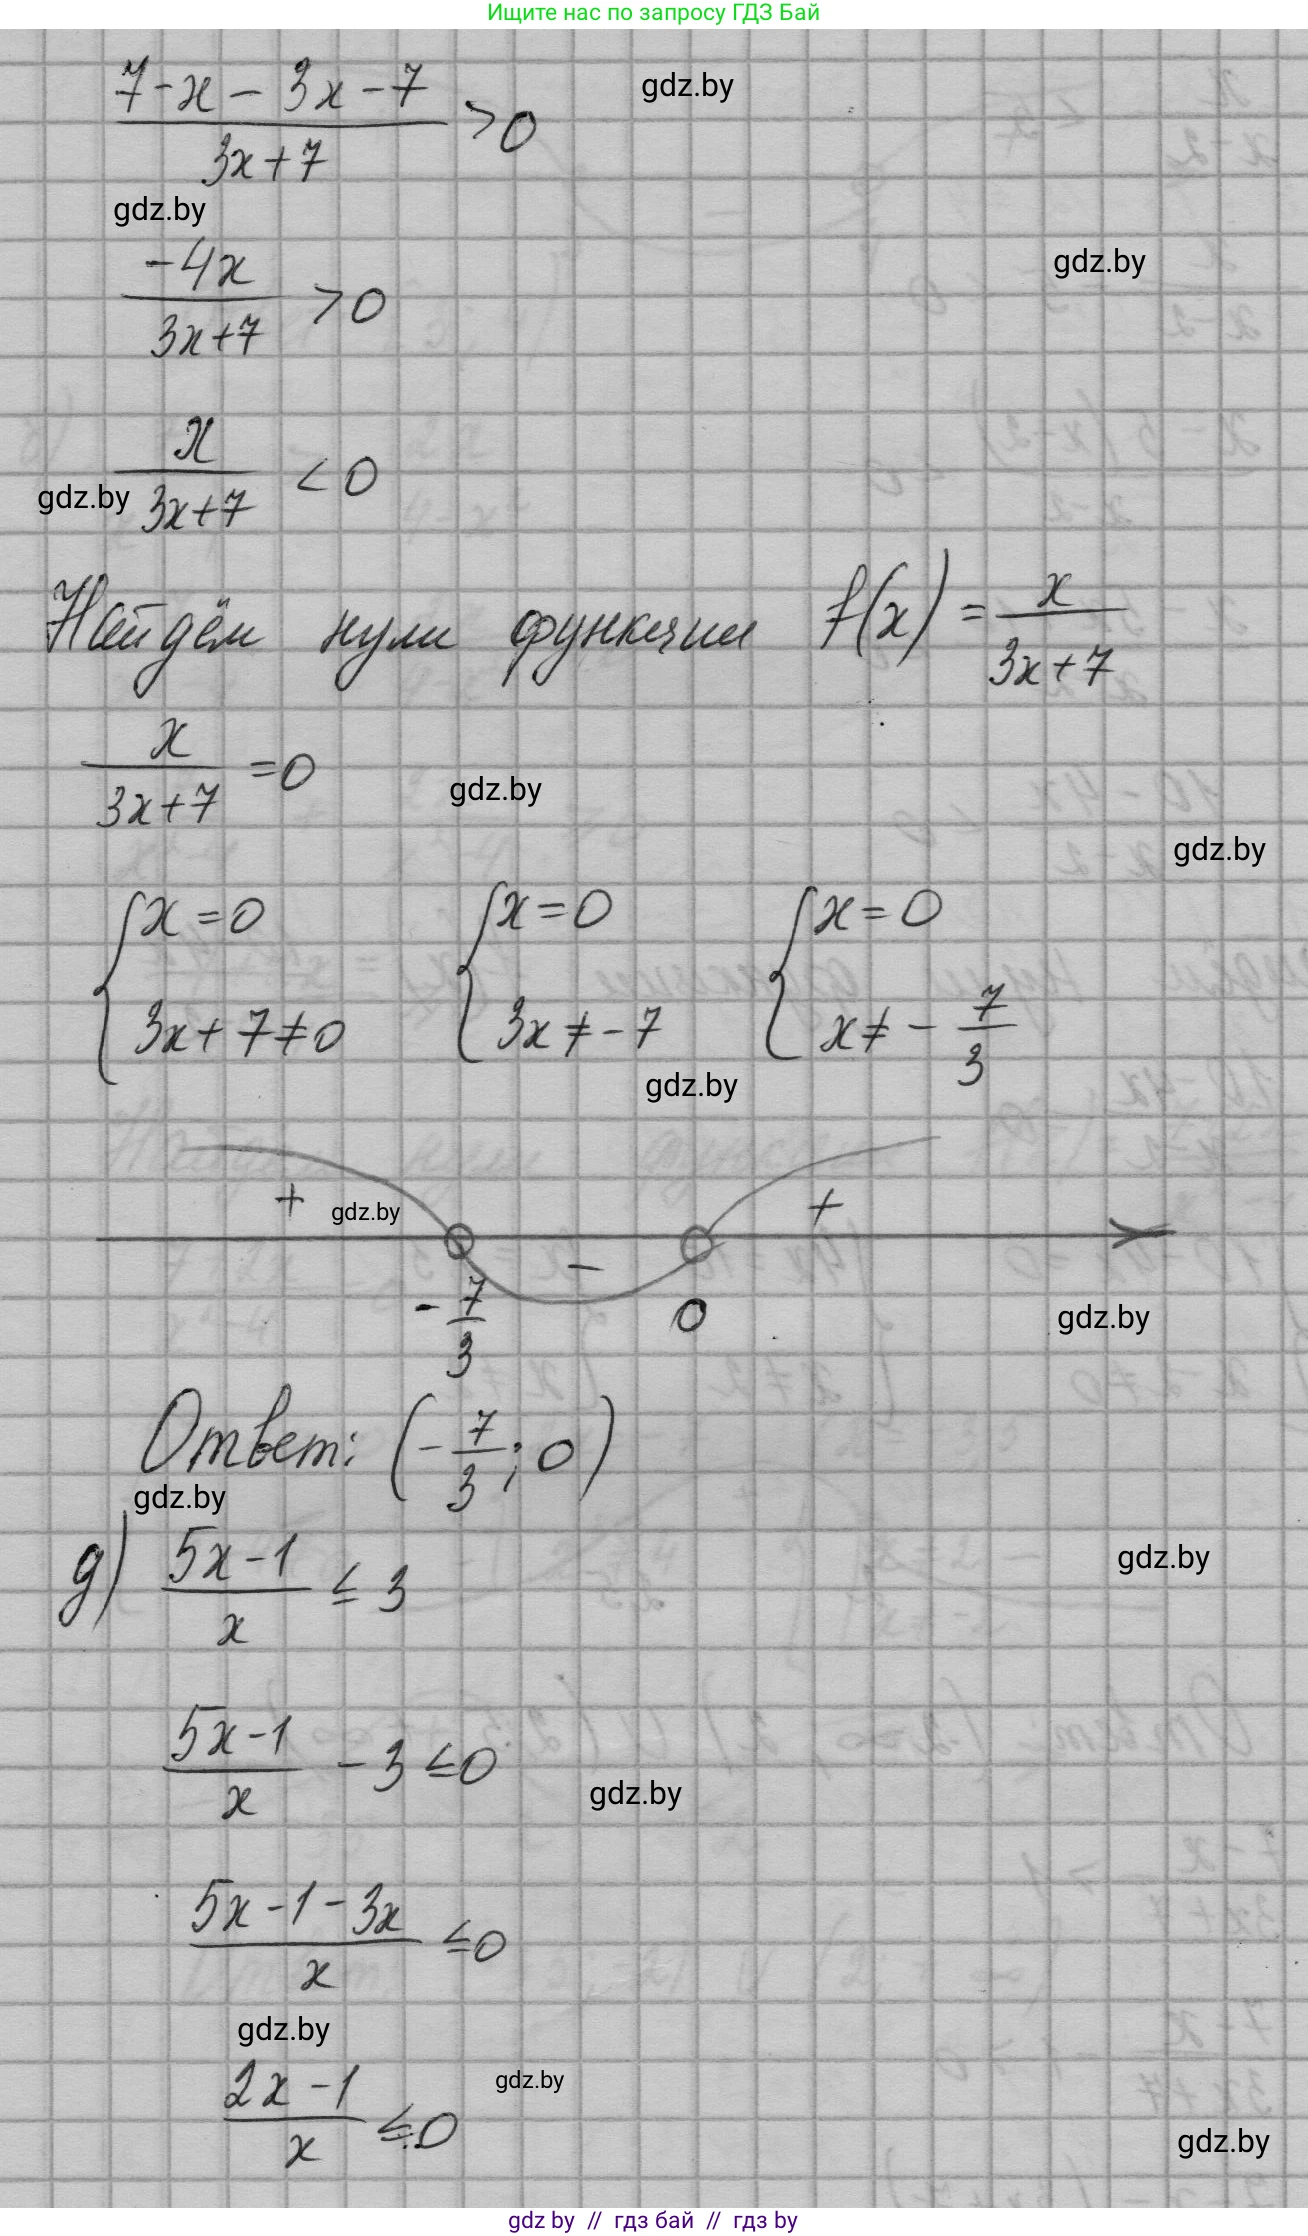 Ищите нас по запросу ГДЗ Бай
(7-x-3x-7)/(3x+7) >0
gdz.by
gdz.by
-4x/(3x+7) >0
gdz.by
x/(3x+7) <0
gdz.by
Найдём нули функции f(x) = x/(3x+7)
x/(3x+7) =0
gdz.by
gdz.by
{x=0 {x=0 {x=0
3x+7≠0 3x≠-7 x≠-7/3
gdz.by
+ gdz.by - +
-7/3 0
gdz.by
Ответ: (-7/3; 0)
gdz.by
д) (5x-1)/x ≤ 3
gdz.by
(5x-1)/x -3≤0
gdz.by
(5x-1-3x)/x ≤0
gdz.by
gdz.by
(2x-1)/x ≤0
gdz.by
gdz by // гдз бай // гдз by